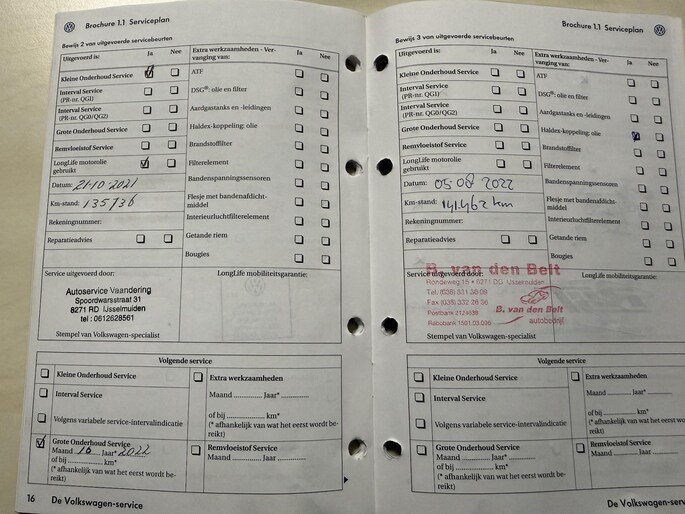 Brochure 1.1 Serviceplan
Bewijs 2 van uitgevoerde servicebeurten
Uitgevoerd is: Ja Nee
Kleine Onderhoud Service
Interval Service
(PR-nr. QG1)
Interval Service
(PR-nr. QG0/QG2)
Grote Onderhoud Service
Remvloeistof Service
LongLife motorolie
gebruikt
Datum: 21-10-2021
Km-stand: 135736
Rekeningnummer:
Reparatieadvies
Extra werkzaamheden - Ver-
vanging van: Ja Nee
ATF
DSG®: olie en filter
Aardgastanks en -leidingen
Haldex-koppeling: olie
Brandstoffilter
Filterelement
Bandenspanningssensoren
Flesje met bandenafdicht-
middel
Interieurluchtfilterelement
Getande riem
Bougies
Service uitgevoerd door:
Autoservice Vaandering
Spoordwarsstraat 31
8271 RD IJsselmuiden
tel : 0612628561
Stempel van Volkswagen-specialist
LongLife mobiliteitsgarantie:
Volgende service
Kleine Onderhoud Service
Interval Service
Volgens variabele service-intervalindicatie
Grote Onderhoud Service
Maand 10 Jaar* 2022
of bij ............... km*
(* afhankelijk van wat het eerst wordt be-
reikt)
Extra werkzaamheden
Maand ........... Jaar* ..............
of bij .................... km*
(* afhankelijk van wat het eerst wordt be-
reikt)
Remvloeistof Service
Maand ........... Jaar ..............
16 De Volkswagen-service
Brochure 1.1 Serviceplan
Bewijs 3 van uitgevoerde servicebeurten
Uitgevoerd is: Ja Nee
Kleine Onderhoud Service
Interval Service
(PR-nr. QG1)
Interval Service
(PR-nr. QG0/QG2)
Grote Onderhoud Service
Remvloeistof Service
LongLife motorolie
gebruikt
Datum: 05 08 2022
Km-stand: 141.462 km
Rekeningnummer:
Reparatieadvies
Extra werkzaamheden - Ver-
vanging van: Ja Nee
ATF
DSG®: olie en filter
Aardgastanks en -leidingen
Haldex-koppeling: olie
Brandstoffilter
Filterelement
Bandenspanningssensoren
Flesje met bandenafdicht-
middel
Interieurluchtfilterelement
Getande riem
Bougies
Service uitgevoerd door:
B. van den Belt
Rondeweg 15 • 8271 DG IJsselmuiden
Tel. (038)
Fax (038)
Postbank
Rabobank
B. van den Belt
autobedrijf
Stempel van Volkswagen-specialist
LongLife mobiliteitsgarantie:
Volgende service
Kleine Onderhoud Service
Interval Service
Volgens variabele service-intervalindicatie
Grote Onderhoud Service
Maand ........... Jaar* ..............
of bij ............... km*
(* afhankelijk van wat het eerst wordt be-
reikt)
Extra werkzaamheden
Maand ........... Jaar* ..............
of bij .................... km*
(* afhankelijk van wat het eerst wordt be-
reikt)
Remvloeistof Service
Maand ........... Jaar ..............
De Volkswagen-se